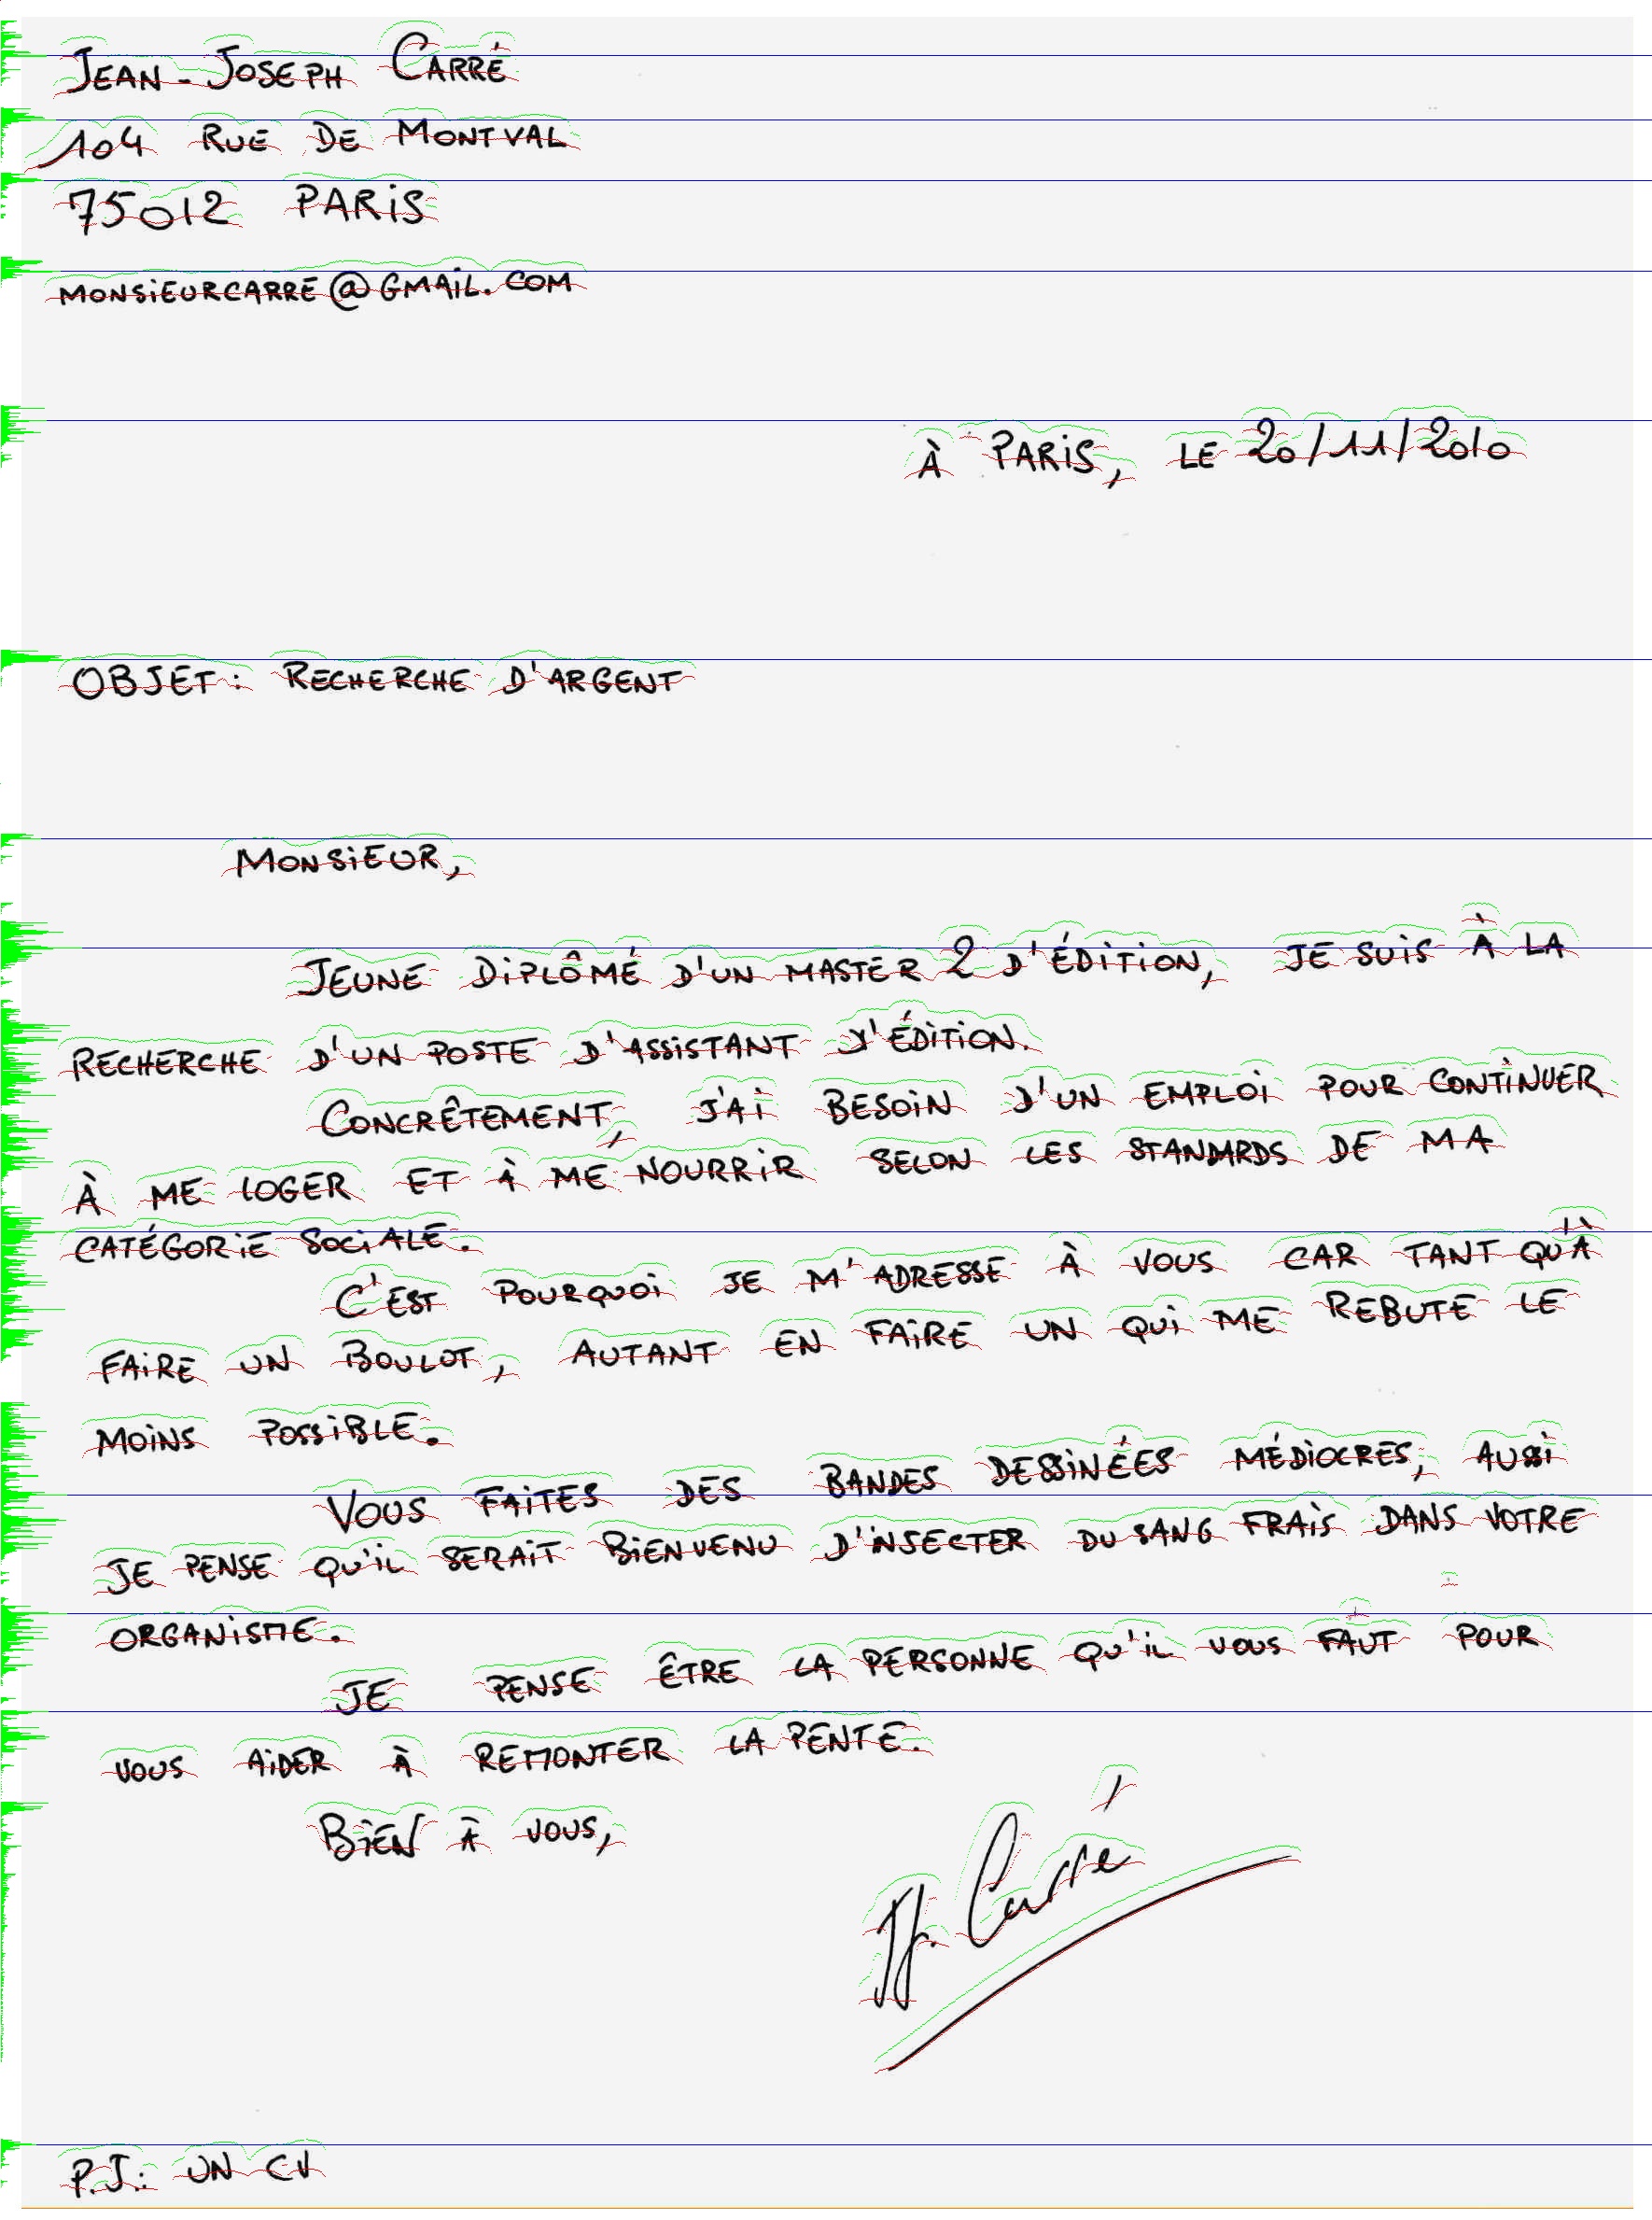 JEAN-JOSEPH CARRÉ
104 RUE DE MONTVAL
75012 PARIS
MONSIEURCARRE@GMAIL.COM
À PARIS, LE 20/11/2010
OBJET: RECHERCHE D'ARGENT
MONSIEUR,
JEUNE DIPLÔMÉ D'UN MASTER 2 D'ÉDITION, JE SUIS À LA
RECHERCHE D'UN POSTE D'ASSISTANT D'ÉDITION.
CONCRÊTEMENT, J'AI BESOIN D'UN EMPLOI POUR CONTINUER
À ME LOGER ET À ME NOURRIR SELON LES STANDARDS DE MA
CATÉGORIE SOCIALE.
C'EST POURQUOI JE M'ADRESSE À VOUS CAR TANT QU'À
FAIRE UN BOULOT, AUTANT EN FAIRE UN QUI ME REBUTE LE
MOINS POSSIBLE.
VOUS FAITES DES BANDES DESSINÉES MÉDIOCRES, AUSSI
JE PENSE QU'IL SERAIT BIENVENU D'INSECTER DU SANG FRAIS DANS VOTRE
ORGANISME.
JE PENSE ÊTRE LA PERSONNE QU'IL VOUS FAUT POUR
VOUS AIDER À REMONTER LA PENTE.
BIEN À VOUS,
JJ. Carré
P.J.: UN CV